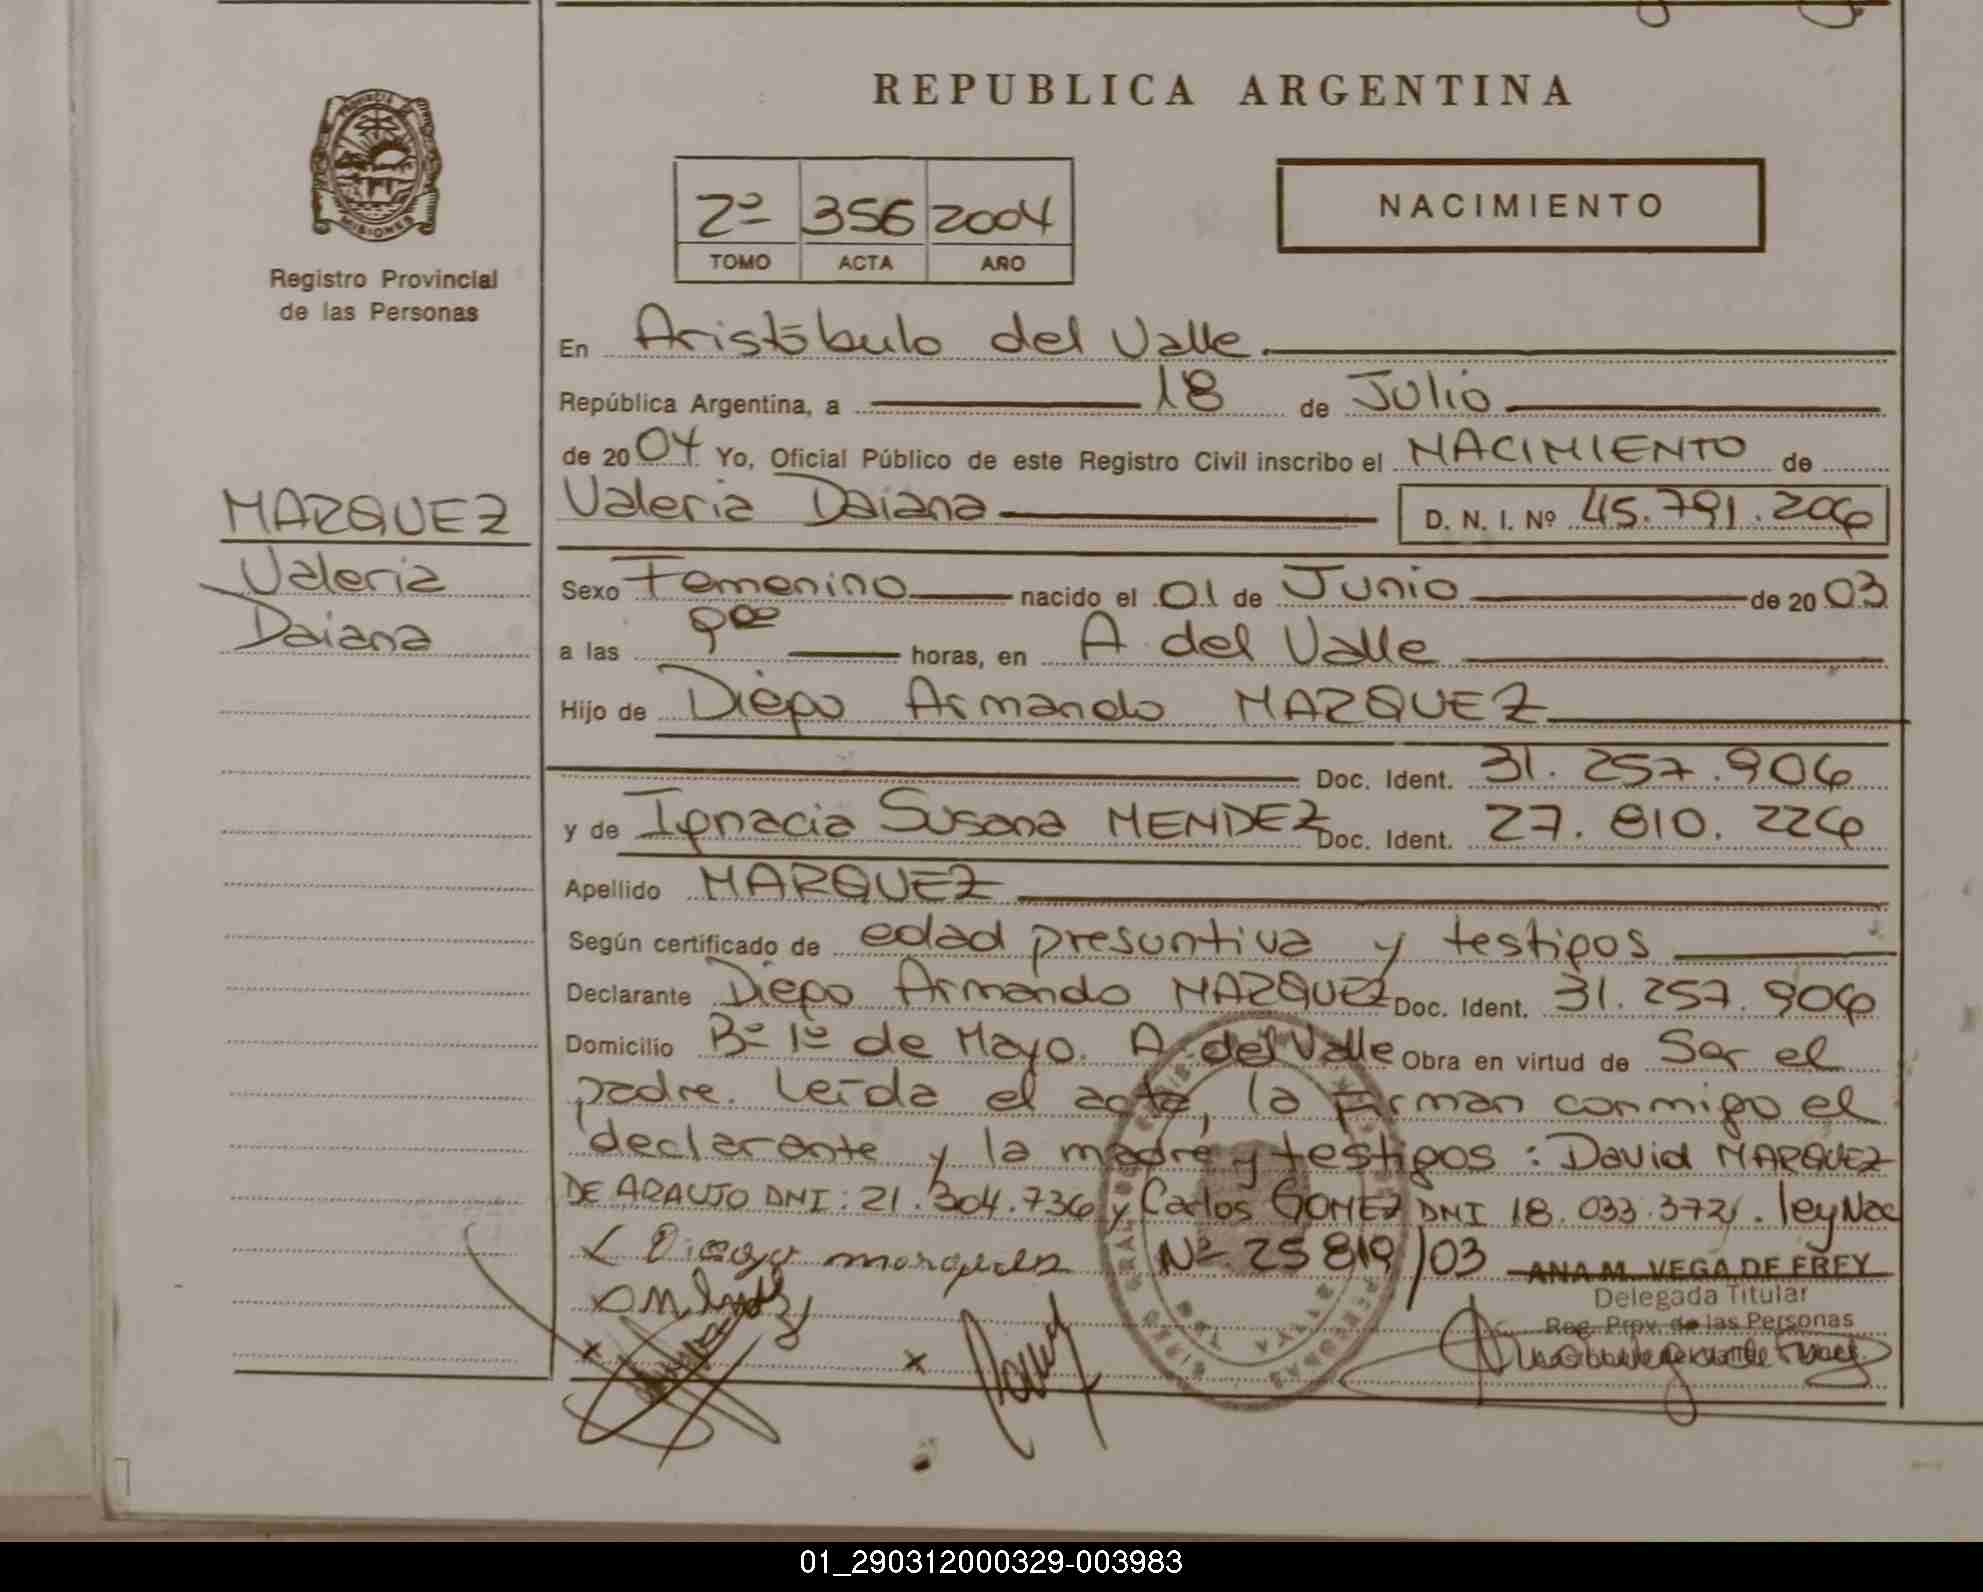 REPUBLICA ARGENTINA
MISIONES
Registro Provincial
de las Personas
2º 356 2004
TOMO ACTA AÑO
NACIMIENTO
En Aristóbulo del Valle
República Argentina, a 18 de Julio
de 2004 Yo, Oficial Público de este Registro Civil inscribo el NACIMIENTO de
MARQUEZ
Valeria
Daiana
Valeria Daiana D. N. I. Nº 45.791.206
Sexo Femenino nacido el 01 de Junio de 2003
a las 9ºº horas, en A. del Valle
Hijo de Diego Armando MARQUEZ
Doc. Ident. 31.257.906
y de Ignacia Susana MENDEZ Doc. Ident. 27.810.226
Apellido MARQUEZ
Según certificado de edad presuntiva y testigos
Declarante Diego Armando MARQUEZ Doc. Ident. 31.257.906
Domicilio Bº 1º de Mayo. A. del Valle Obra en virtud de Ser el
padre. Leída el acta, la firman conmigo el
declarante y la madre y testigos: David MARQUEZ
DE ARAUJO DNI: 21.304.736 y Carlos GOMEZ DNI 18.033.372. ley Nac
Nº 25819/03
ANA M. VEGA DE FREY
Delegada Titular
Reg. Prov. de las Personas
01_290312000329-003983